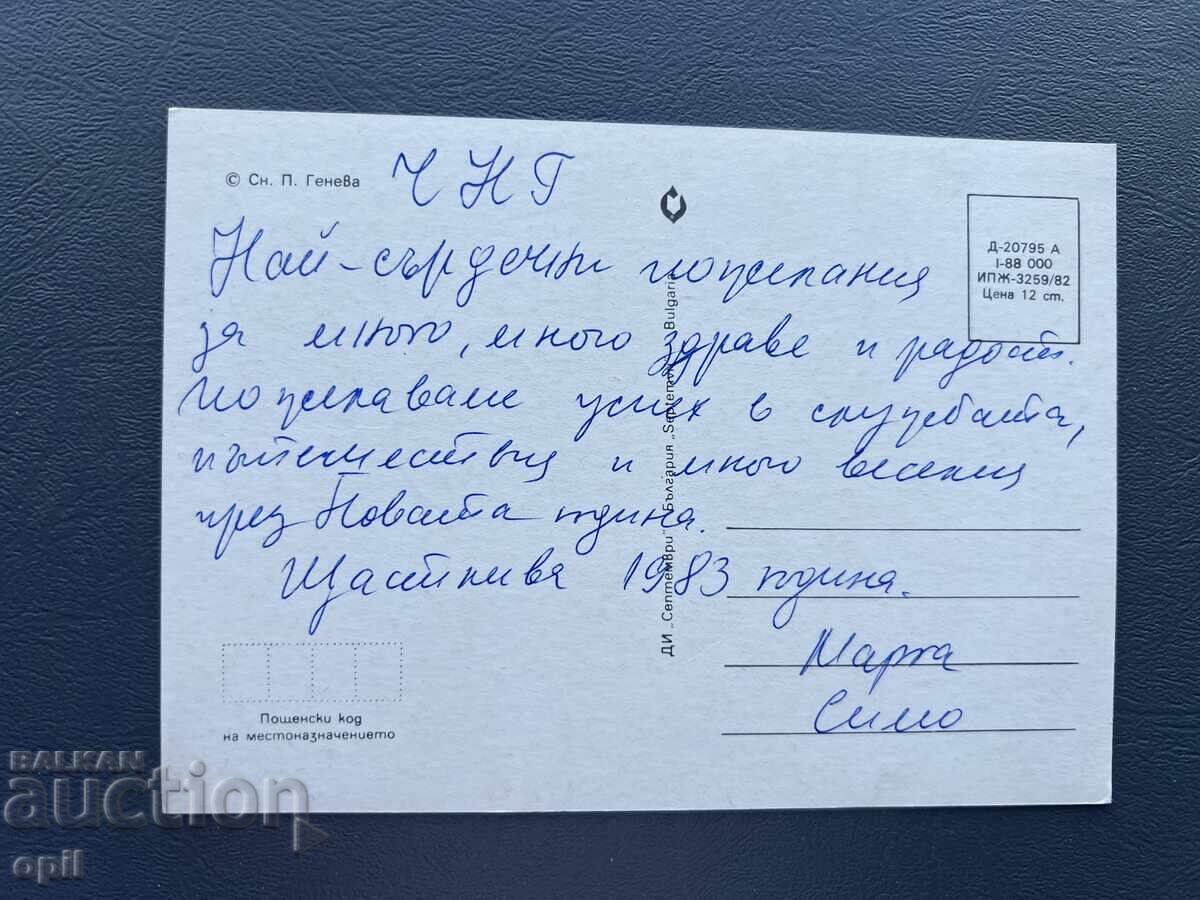 © Сн. П. Генева
ЧНГ
Най-сърдечни пожелания
за много, много здраве и радост.
Пожелаваме успех в службата,
пътешествия и много веселия
през Новата година.
Щастлива 1983 година.
Марта
Симо
Д-20795 А
I-88 000
ИПЖ-3259/82
Цена 12 ст.
ДИ „Септември" България „Septemvri" Bulgaria
Пощенски код
на местоназначението
BALKAN
auction
opil